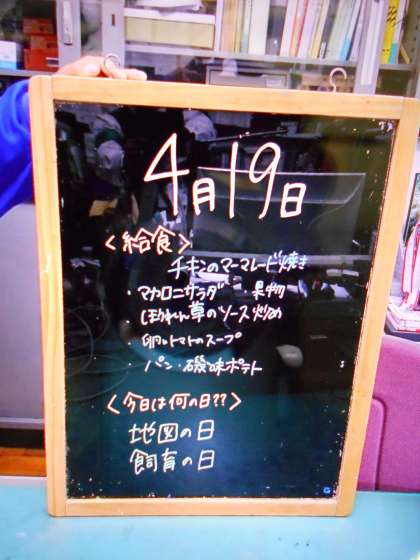 4月19日
<給食>
チキンのマーマレード焼き
・マカロニサラダ 果物
ほうれん草のソース炒め
・卵とトマトのスープ
・パン・磯味ポテト
<今日は何の日??>
地図の日
飼育の日